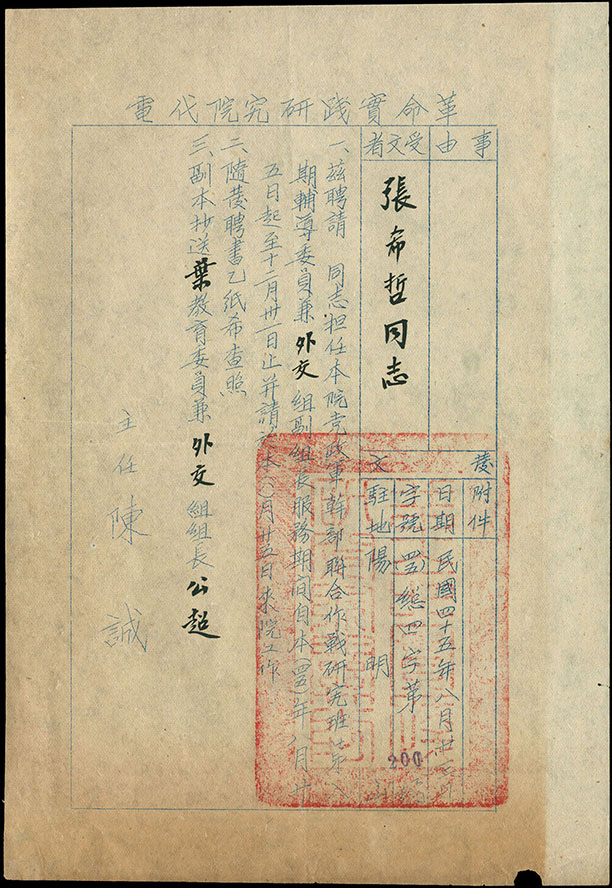 革命實踐研究院代電
事由
受文者
張希哲同志
附件
發文
日期民國四十五年八月廿
字號(45)總四字第
200
駐地陽明山
一、茲聘請 同志担任本院党政軍幹部聯合作戰研究班第八
期輔導委員兼外交組副組長服務期間自本(45)年八月廿
五日起至十二月卅一日止并請於本〇月廿五日來院工作
二、隨發聘書乙紙希查照
三、副本抄送葉教育委員兼外交組組長公超
主任陳誠